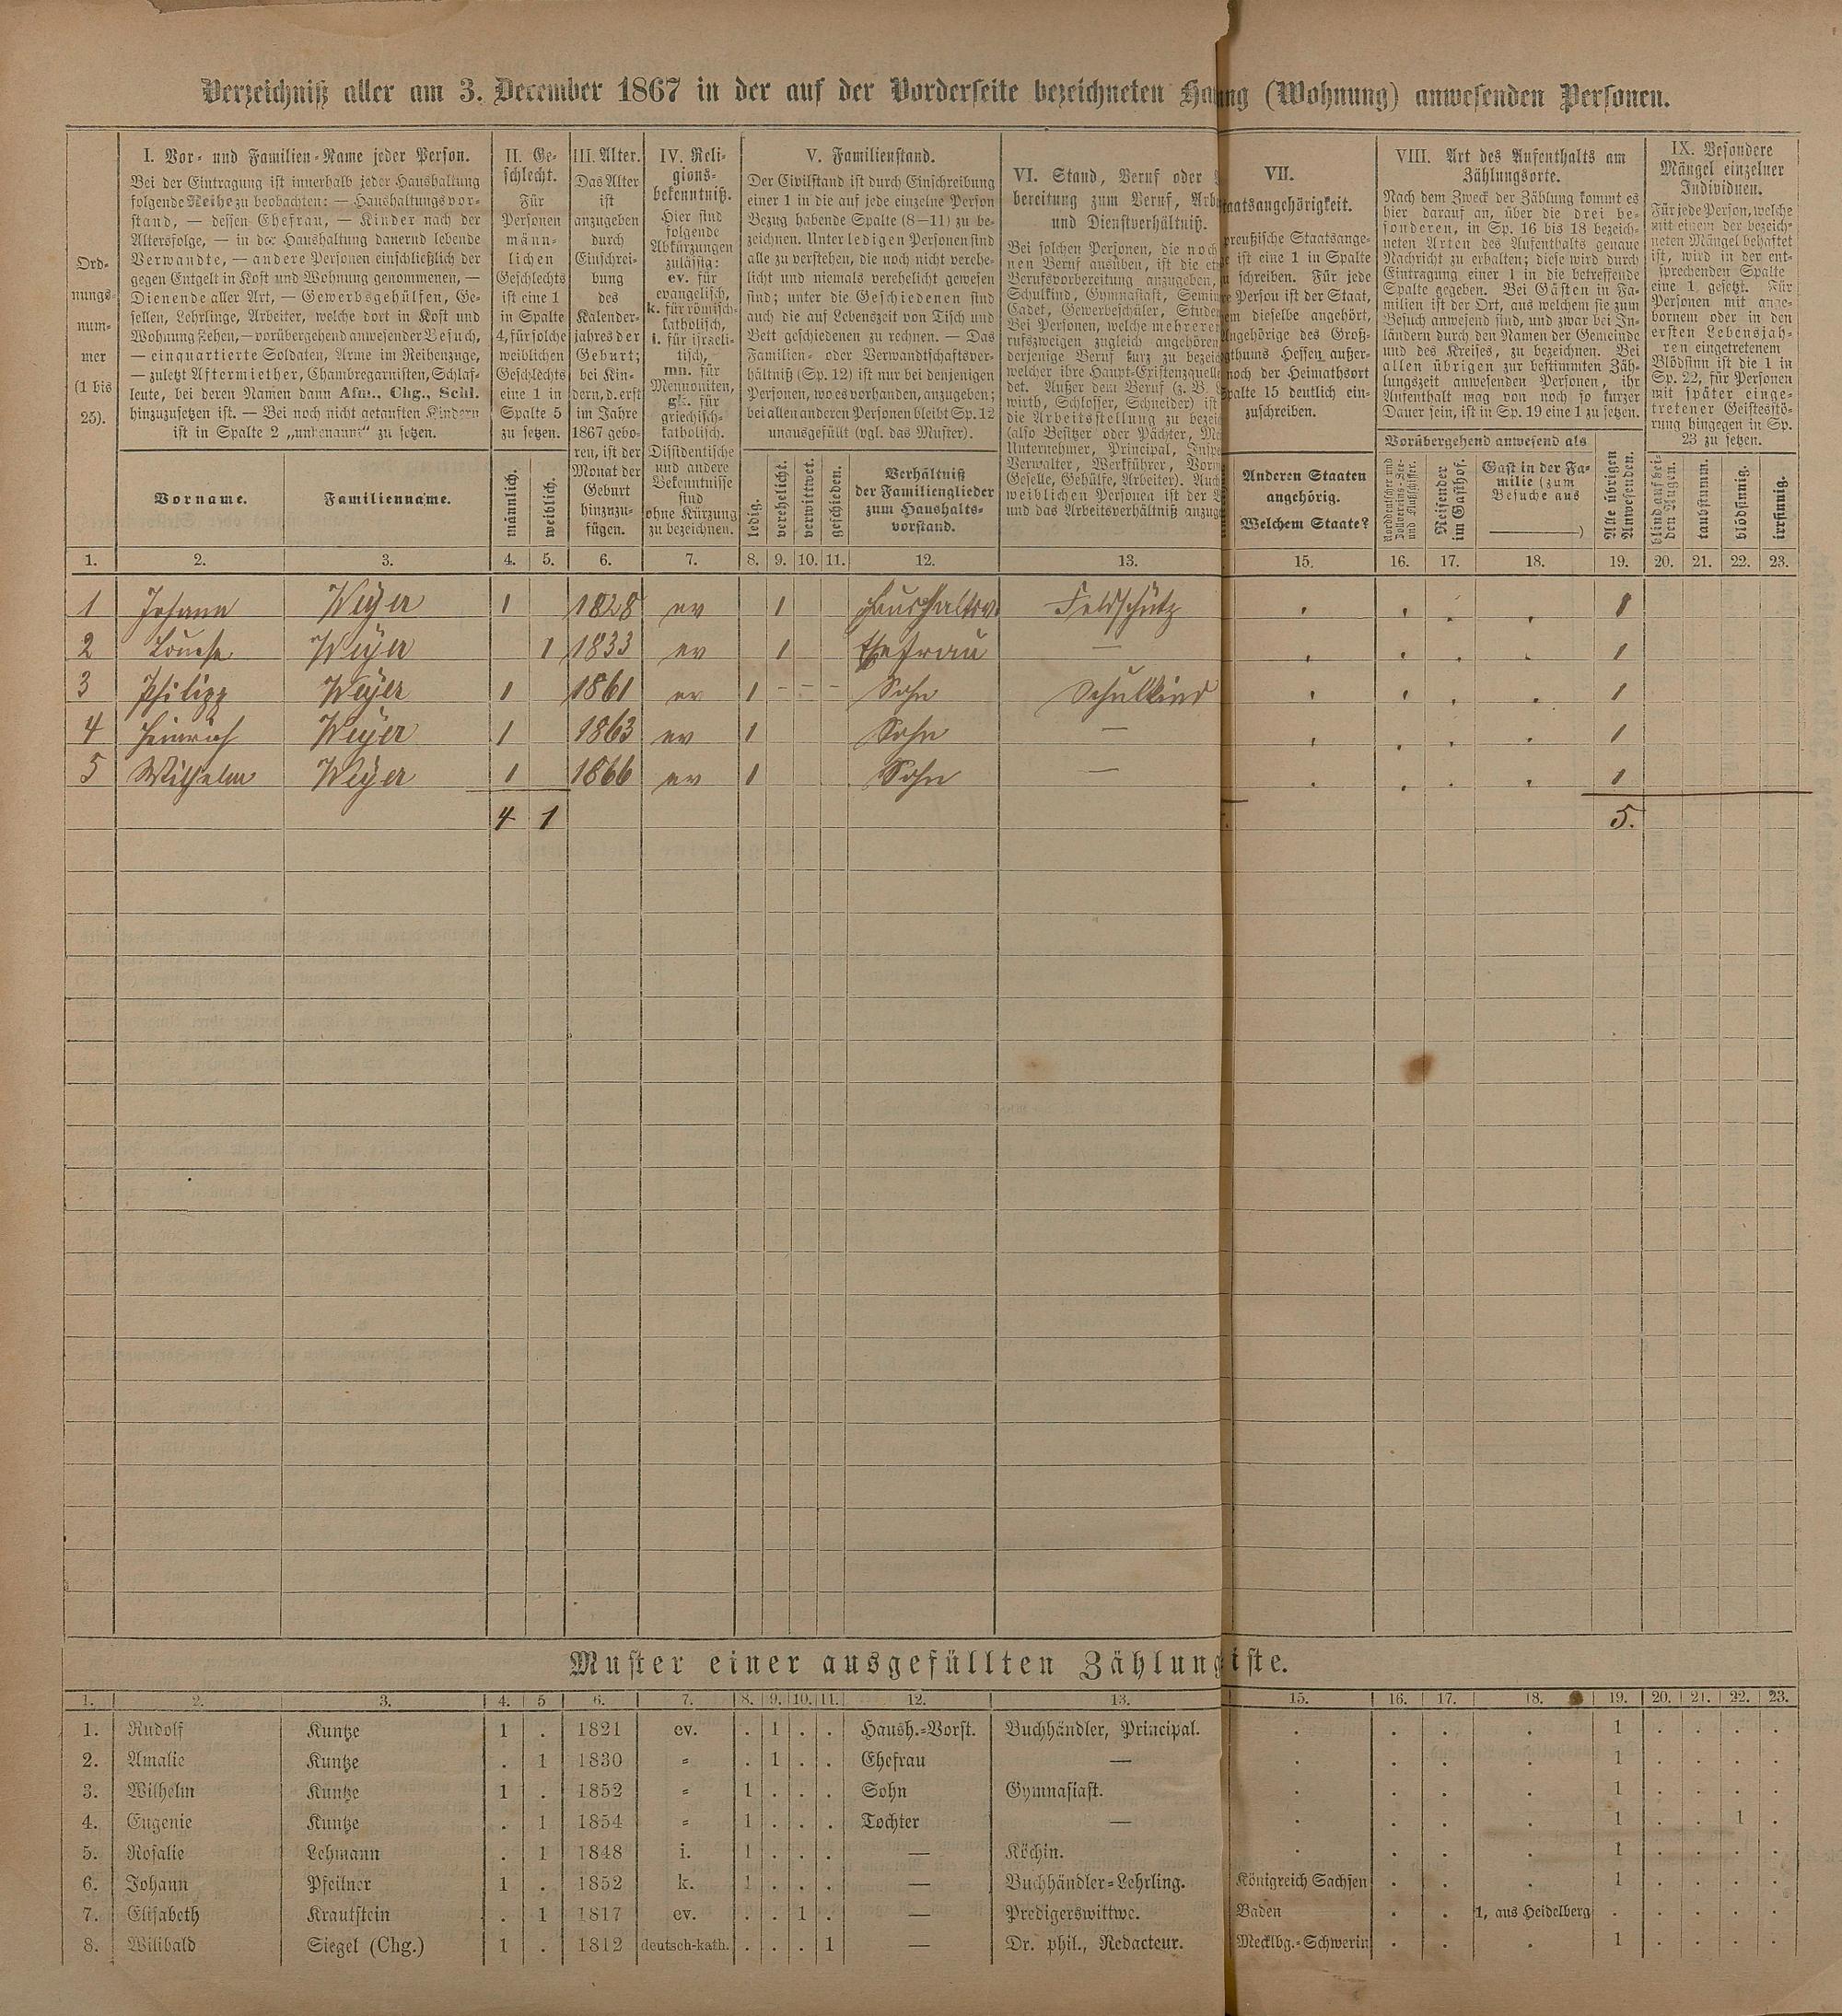 Verzeichniß aller am 3. December 1867 in der auf der Vorderseite bezeichneten Ha ng (Wohnung) anwesenden Personen.
Ord-
nungs-
num-
mer
(1 bis
25).
I. Vor- und Familien-Name jeder Person.
Bei der Eintragung ist innerhalb jeder Haushaltung
folgende Reihe zu beobachten: — Haushaltungsvor-
stand, — dessen Ehefrau, — Kinder nach der
Altersfolge, — in der Haushaltung dauernd lebende
Verwandte, — andere Personen einschließlich der
gegen Entgelt in Kost und Wohnung genommenen, —
Dienende aller Art, — Gewerbsgehülfen, Ge-
sellen, Lehrlinge, Arbeiter, welche dort in Kost und
Wohnung stehen, — vorübergehend anwesender Besuch,
— einquartierte Soldaten, Arme im Reihenzuge,
— zuletzt Aftermiether, Chambregarnisten, Schlaf-
leute, bei deren Namen dann Afm., Chg., Schl.
hinzuzusetzen ist. — Bei noch nicht getauften Kindern
ist in Spalte 2 „unbenannt“ zu setzen.
Vorname.
Familienname.
II. Ge-
schlecht.
Für
Personen
männ-
lichen
Geschlechts
ist eine 1
in Spalte
4, für solche
weiblichen
Geschlechts
eine 1 in
Spalte 5
zu setzen.
männlich.
weiblich.
III. Alter.
Das Alter
ist
anzugeben
durch
Einschrei-
bung
des
Kalender-
jahres der
Geburt;
bei Kin-
dern, d. erst
im Jahre
1867 gebo-
ren, ist der
Monat der
Geburt
hinzuzu-
fügen.
IV. Reli-
gions-
bekenntniß.
Hier sind
folgende
Abkürzungen
zulässig:
ev. für
evangelisch,
k. für römisch-
katholisch,
i. für israeli-
tisch,
mn. für
Mennoniten,
gk. für
griechisch-
katholisch.
Dissidentische
und andere
Bekenntnisse
sind
ohne Kürzung
zu bezeichnen.
V. Familienstand.
Der Civilstand ist durch Einschreibung
einer 1 in die auf jede einzelne Person
Bezug habende Spalte (8—11) zu be-
zeichnen. Unter ledigen Personen sind
alle zu verstehen, die noch nicht verehe-
licht und niemals verehelicht gewesen
sind; unter die Geschiedenen sind
auch die auf Lebenszeit von Tisch und
Bett geschiedenen zu rechnen. — Das
Familien- oder Verwandtschaftsver-
hältniß (Sp. 12) ist nur bei denjenigen
Personen, wo es vorhanden, anzugeben;
bei allen anderen Personen bleibt Sp. 12
unausgefüllt (vgl. das Muster).
ledig.
verehelicht.
verwittwet.
geschieden.
Verhältniß
der Familienglieder
zum Haushalts-
vorstand.
VI. Stand, Beruf oder
bereitung zum Beruf, Arb
und Dienstverhältniß.
Bei solchen Personen, die noch
nen Beruf ausüben, ist die et
Berufsvorbereitung anzugeben,
Schulkind, Gymnasiast, Semin
Cadet, Gewerbeschüler, Studen
Bei Personen, welche mehreren
rufszweigen zugleich angehören
derjenige Beruf kurz zu bezei
welcher ihre Haupt-Existenzquelle
det. Außer dem Beruf (z. B.
wirth, Schlosser, Schneider) ist
die Arbeitsstellung zu bezei
(also Besitzer oder Pächter, M
Unternehmer, Principal, Inspe
Verwalter, Werkführer, Vorm
Geselle, Gehülfe, Arbeiter). Auch
weiblichen Personen ist der
und das Arbeitsverhältniß anzug
VII.
aatsangehörigkeit.
preußische Staatsange-
ist eine 1 in Spalte
schreiben. Für jede
Person ist der Staat,
em dieselbe angehört,
ngehörige des Groß-
gthums Hessen außer-
noch der Heimathsort
palte 15 deutlich ein-
zuschreiben.
Anderen Staaten
angehörig.
Welchem Staate?
VIII. Art des Aufenthalts am
Zählungsorte.
Nach dem Zweck der Zählung kommt es
hier darauf an, über die drei be-
sonderen, in Sp. 16 bis 18 bezeich-
neten Arten des Aufenthalts genaue
Nachricht zu erhalten; diese wird durch
Eintragung einer 1 in die betreffende
Spalte gegeben. Bei Gästen in Fa-
milien ist der Ort, aus welchem sie zum
Besuch anwesend sind, und zwar bei In-
ländern durch den Namen der Gemeinde
und des Kreises, zu bezeichnen. Bei
allen übrigen zur bestimmten Zäh-
lungszeit anwesenden Personen, ihr
Aufenthalt mag von noch so kurzer
Dauer sein, ist in Sp. 19 eine 1 zu setzen.
Vorübergehend anwesend als
Norddeutscher und
Zollvereins-See-
und Flußschiffer.
Reisender
im Gasthof.
Gast in der Fa-
milie (zum
Besuche aus
)
Alle übrigen
Anwesenden.
IX. Besondere
Mängel einzelner
Individuen.
Für jede Person, welche
mit einem der bezeich-
neten Mängel behaftet
ist, wird in der ent-
sprechenden Spalte
eine 1 gesetzt. Für
Personen mit ange-
bornem oder in den
ersten Lebensjah-
ren eingetretenem
Blödsinn ist die 1 in
Sp. 22, für Personen
mit später einge-
tretener Geistesstö-
rung hingegen in Sp.
23 zu setzen.
blind auf bei-
den Augen.
taubstumm.
blödsinnig.
irrsinnig.
1. 2. 3. 4. 5. 6. 7. 8. 9. 10. 11. 12. 13. 15. 16. 17. 18. 19. 20. 21. 22. 23.
1 Johann Weyer 1 1828 ev 1 Haushaltsv. Feldschütz . . . . 1
2 Louise Weyer 1 1833 ev 1 Ehefrau — . . . . 1
3 Philipp Weyer 1 1861 ev 1 - - - Sohn Schulkind . . . . 1
4 Heinrich Weyer 1 1863 ev 1 Sohn — . . . . 1
5 Wilhelm Weyer 1 1866 ev 1 Sohn — . . . . 1
4 1 5.
Muster einer ausgefüllten Zählung iste.
1. 2. 3. 4. 5 6. 7. 8. 9. 10. 11. 12. 13. 15. 16. 17. 18. 19. 20. 21. 22. 23.
1. Rudolf Kuntze 1 . 1821 ev. . 1 . . Haush.-Vorst. Buchhändler, Principal. . . . . 1 . . . .
2. Amalie Kuntze . 1 1830 = . 1 . . Ehefrau — . . . . 1 . . . .
3. Wilhelm Kuntze 1 . 1852 = 1 . . . Sohn Gymnasiast. . . . . 1 . . . .
4. Eugenie Kuntze . 1 1854 = 1 . . . Tochter — . . . . 1 . . 1 .
5. Rosalie Lehmann . 1 1848 i. 1 . . . — Köchin. . . . . 1 . . . .
6. Johann Pfeilner 1 . 1852 k. 1 . . . — Buchhändler-Lehrling. Königreich Sachsen . . . 1 . . . .
7. Elisabeth Krautstein . 1 1817 ev. . . 1 . — Predigerswittwe. Baden . . 1, aus Heidelberg . . . . .
8. Wilibald Siegel (Chg.) 1 . 1812 deutsch-kath. . . . 1 — Dr. phil., Redacteur. Mecklbg.-Schwerin . . . 1 . . . .